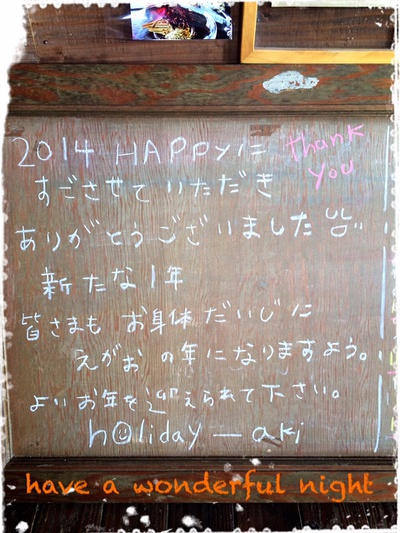 2014 HAPPYに
thank you
すごさせていただき
ありがとうございました
新たな1年
皆さまも お身体だいじに
えがお の年になりますよう。
よいお年を迎えられて下さい。
holiday — aki
have a wonderful night